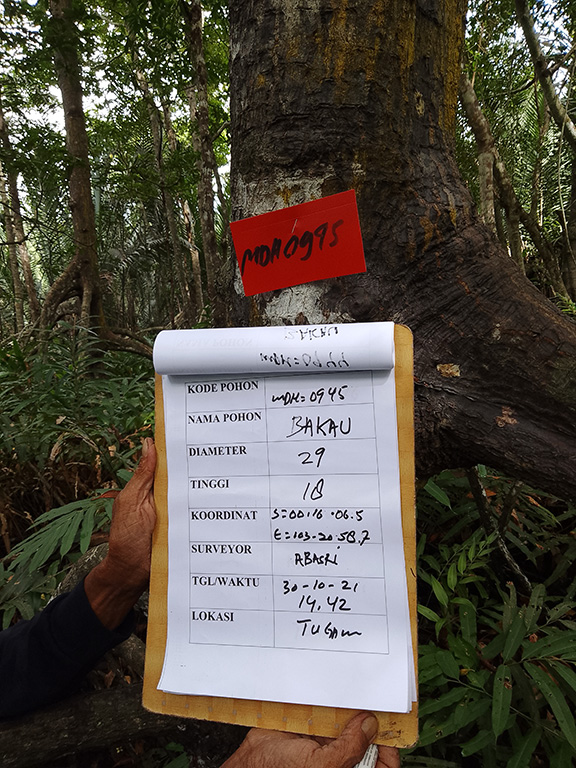 MDH0995
BAKAU
KODE POHON MDH=0945
NAMA POHON BAKAU
DIAMETER 29
TINGGI 18
KOORDINAT S=00.16.06.5
E=103-20.58,7
SURVEYOR ABASRI
TGL/WAKTU 30-10-21
14.42
LOKASI TUGAM